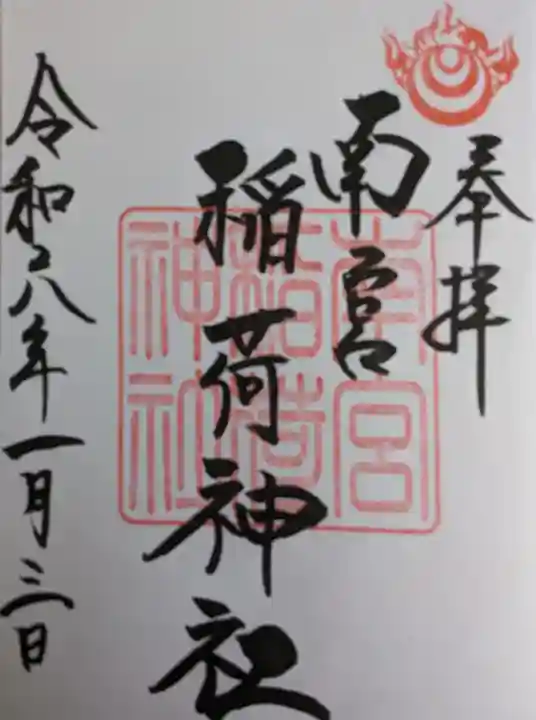 奉拝
南宮
稲荷神社
南宮
稲荷
神社
令和八年一月三日